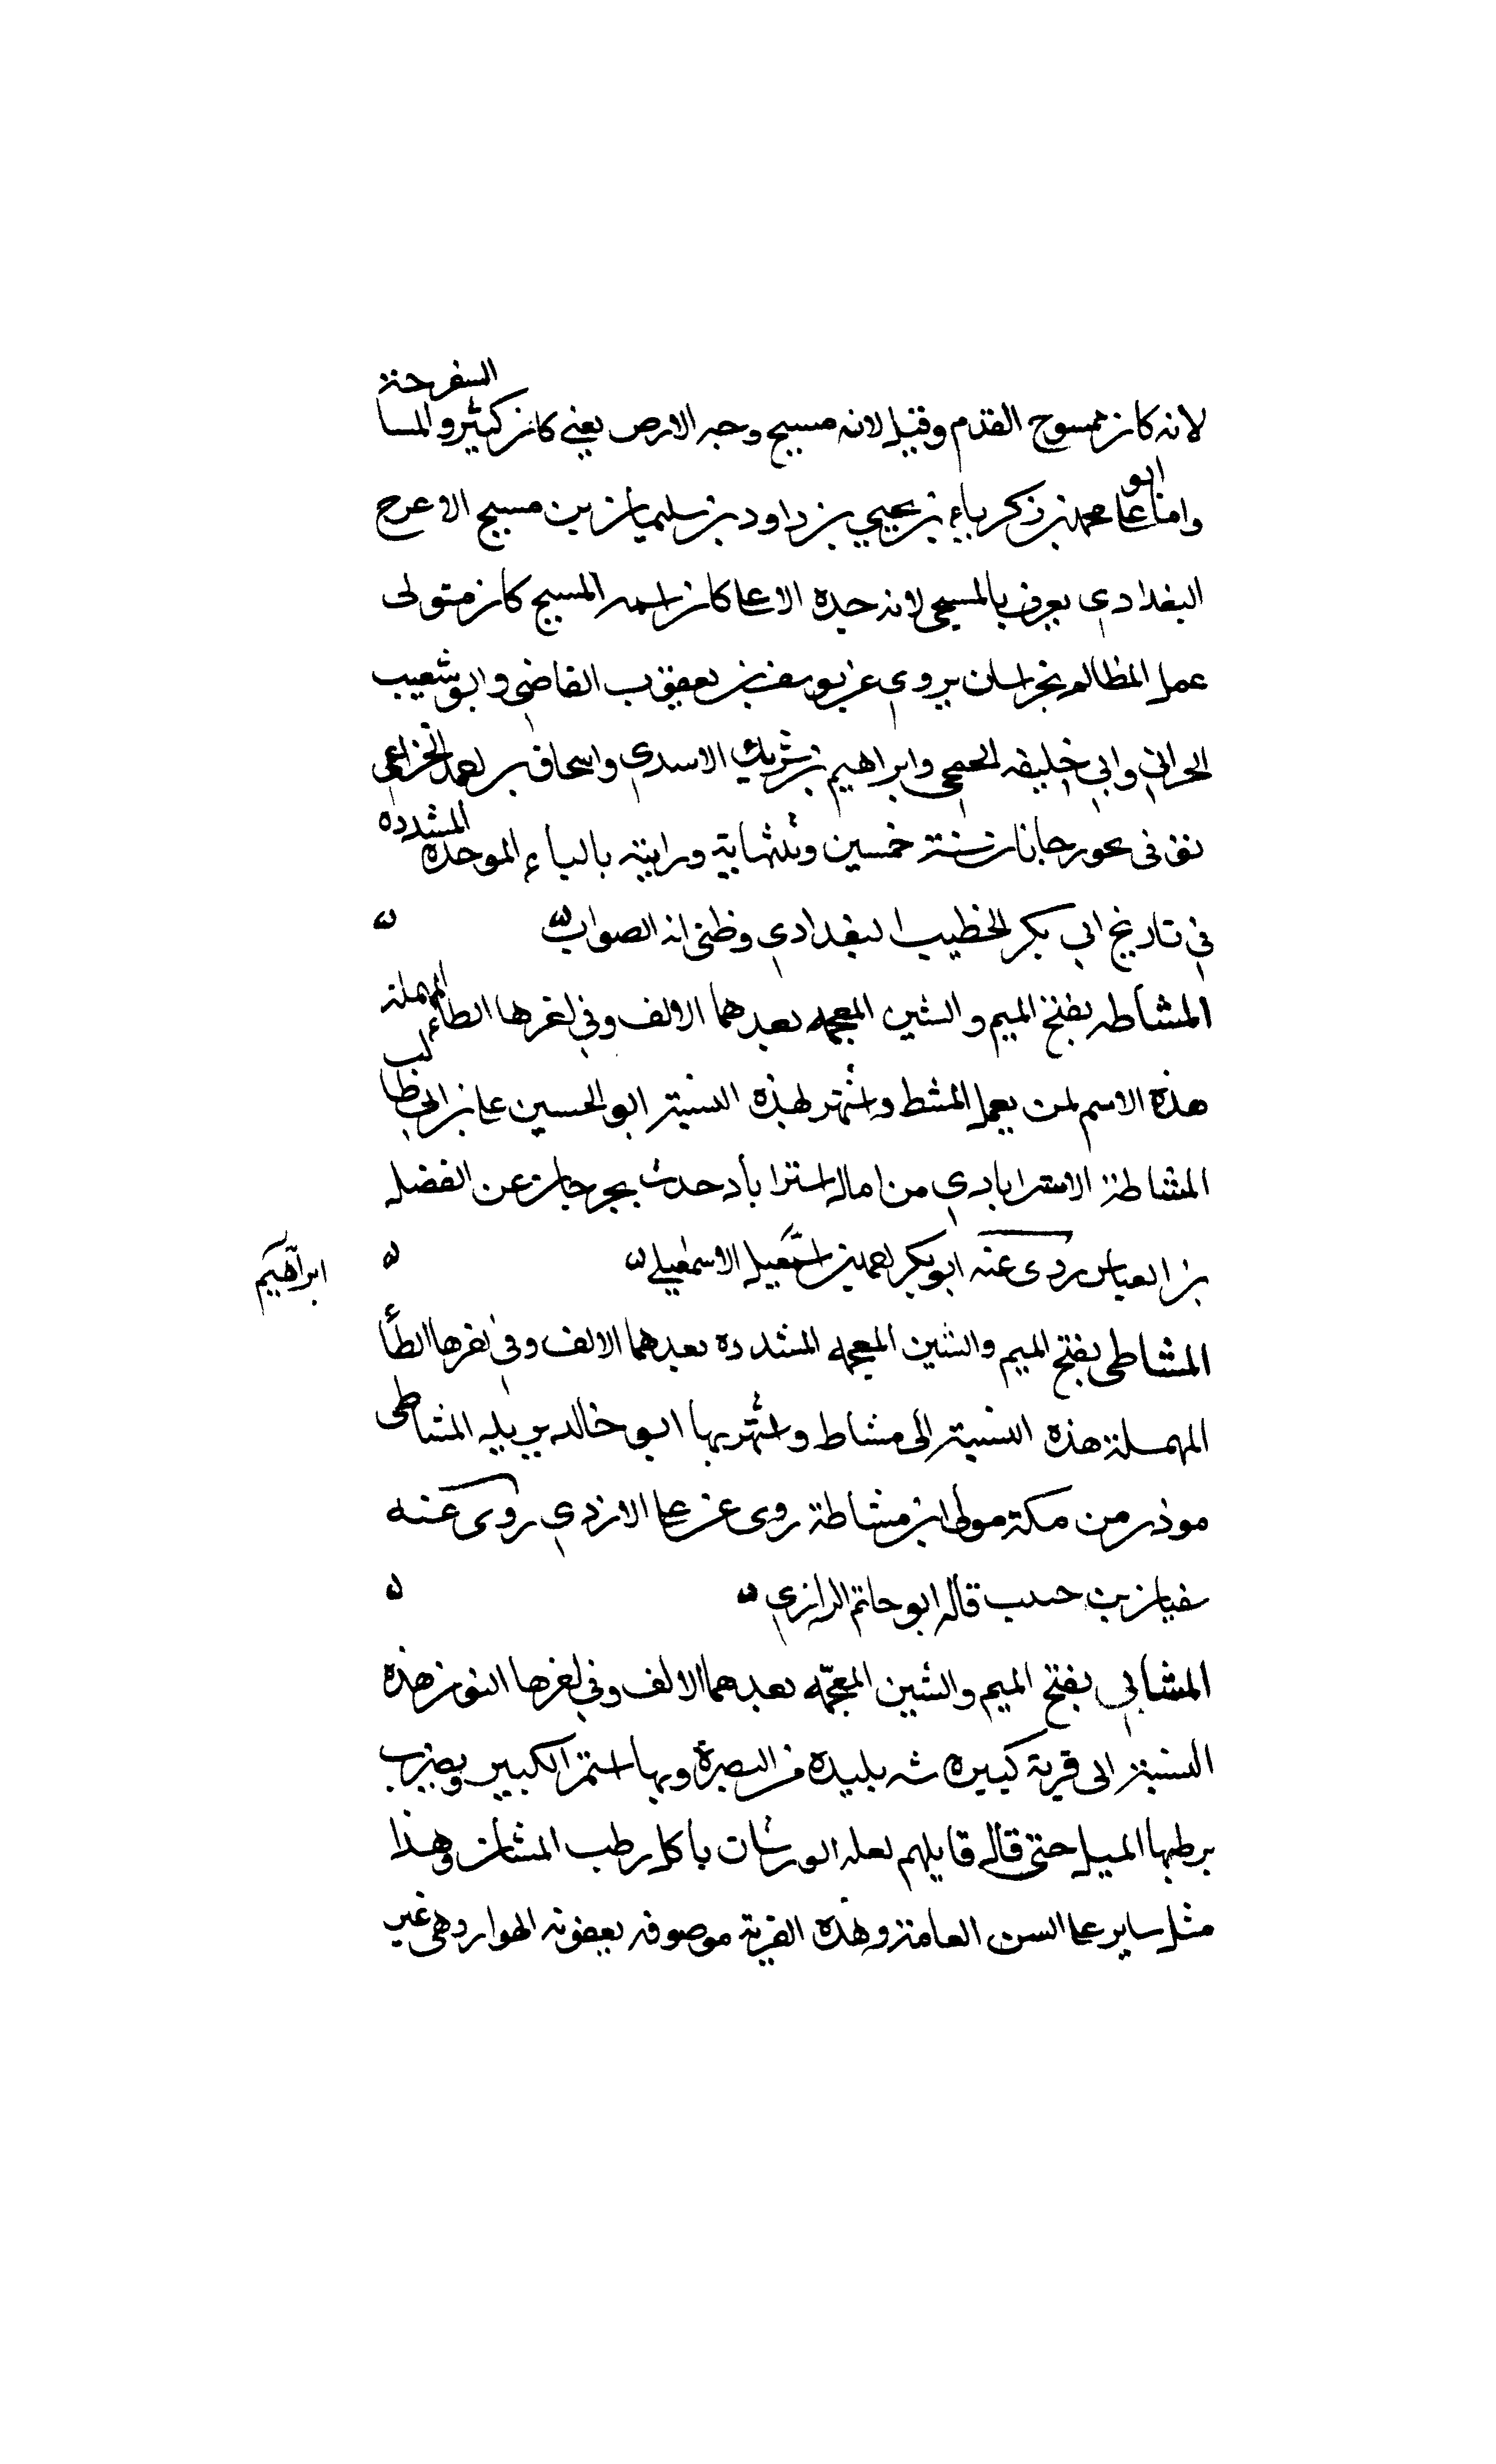 لانه كان ممسوح القدم وقيل لانه مسيح وجه الارض يعني كان كثير والمسا
السفرحة
واما ابو علي محمد بن زكرياء بن يحيى بن داود بن سليمان بن مسيح الاعرج
البغدادي يعرف بالمسيحي لانه جده الاعلى كان اسمه المسيح كان متولى
عمل المظالم بخراسان يروي عن يوسف بن يعقوب القاضي وابو شعيب
الحراني وابي خليفه الجمحي وابراهيم بن شريك الاسدي واسحاق بن احمد الخزاعي
توفى بجورجانان سنة خمسين وثلثماية ورايته بالباء الموحدة المشدده
في تاريخ ابي بكر الخطيب البغدادي وظني انه الصواب ه
المشاطه بفتح الميم والشين المعجمه بعدهما الالف وفي اخرها الطاء المهملة
هذه الاسم لمن يعمل المشط واشتهر بهذه النسبة ابو الحسين علي بن ابي طالب
المشاطة الاسترابادي من اماله استراباد حدث بجرجان عن الفضل
بن العباس روى عنه ابو بكر احمد بن اسمعيل الاسمعيلي ه
ابراهيم
المشاطي بفتح الميم والشين المعجمه المشدده بعدهما الالف وفي اخرها الطا
المهملة هذه النسبة الى مشاط واشتهر بها ابو خالد المشاطي
موذن من مكة مولى ابن مشاطة روى عن علي الازدي روى عنه
سفيان بن حبيب قاله ابو حاتم الرازي ه
المشاني بفتح الميم والشين المعجمه بعدهما الالف وفي اخرها النون هذه
النسبة الى قرية كبيره شه بليدة من البصرة وبها التمر الكبير ويضرب
برطبها الميل حتى قال قايلهم لعله الورشان ياكل رطب المشان وهذا
مثل ساير على السن العامة وهذه القرية موصوفه بعفونه الهوا وهي غير